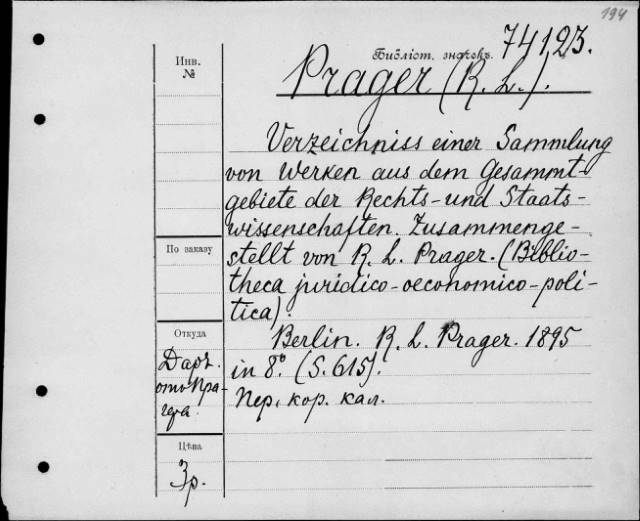 194
Библіот. значекъ. 74123.
Инв.
№
Prager (R. L.).
Verzeichniss einer Sammlung
von Werken aus dem Gesammt-
gebiete der Rechts- und Staats-
wissenschaften. Zusammenge-
stellt von R. L. Prager. (Biblio-
theca juridico-oeconomico-poli-
tica).
Berlin. R. L. Prager. 1895
in 8°. (S. 615).
Пер. кор. кал.
По заказу
Откуда
Даръ
отъ Пра-
гера
Цѣна
3 р.